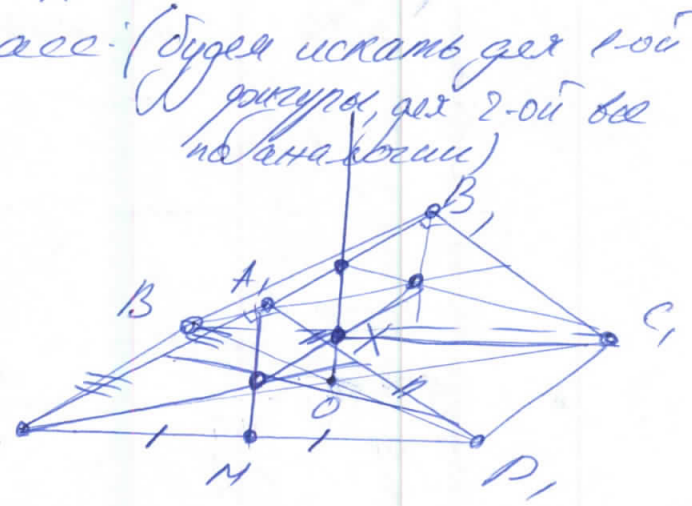 асс. (будем искать для 1-ой
фигуры, для 2-ой все
по аналогии)
B₁
B
A₁
X
C₁
O
M
D₁